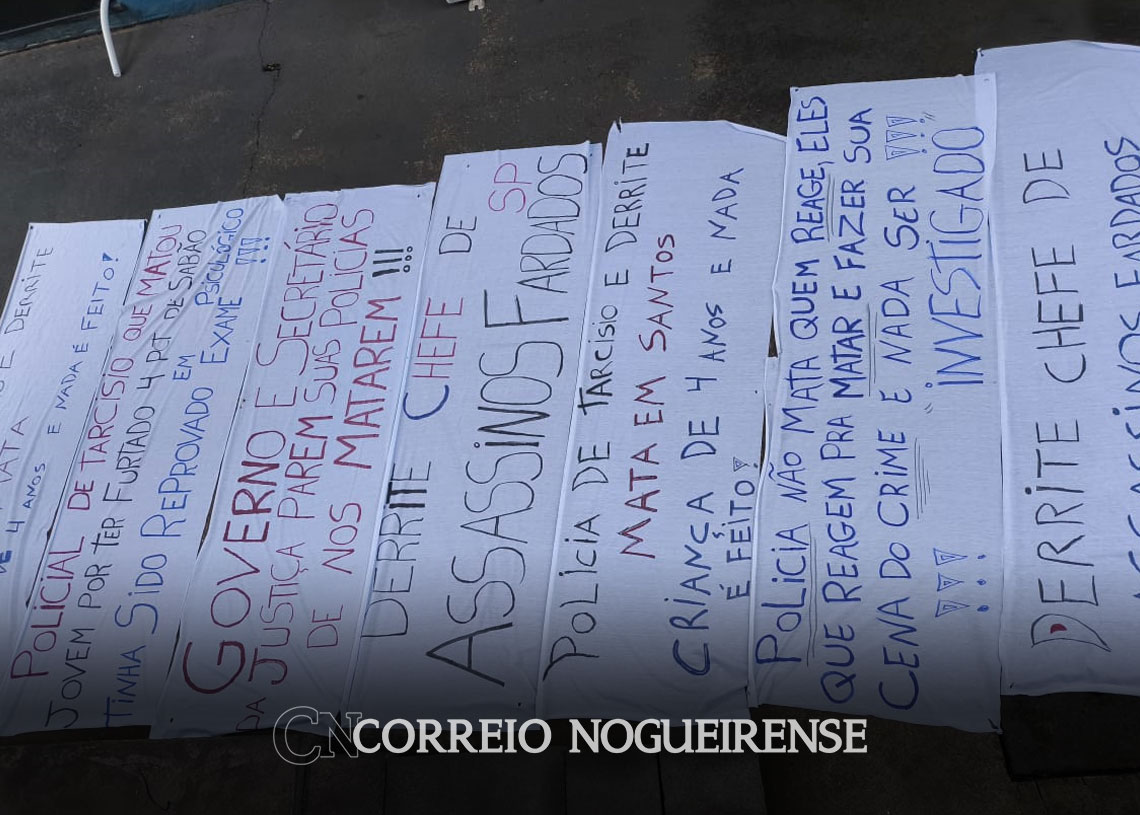 E DERRITE
4 ANOS E NADA É FEITO!
POLICIAL DE TARCISIO QUE MATOU
JOVEM POR TER FURTADO 4 PT DE SABÃO
TINHA SIDO REPROVADO EM PSICOLÓGICO
EXAME !!!
GOVERNO E SECRETÁRIO
DA JUSTIÇA PAREM SUAS POLICIAS
DE NOS MATAREM !!!
DERRITE CHEFE DE
SP
ASSASSINOS FARDADOS
POLICIA DE TARCISIO E DERRITE
MATA EM SANTOS
CRIANÇA DE 4 ANOS E NADA
É FEITO!
POLICIA NÃO MATA QUEM REAGE, ELES
QUE REAGEM PRA MATAR E FAZER SUA
CENA DO CRIME E NADA SER !!!
!!! "INVESTIGADO"
DERRITE CHEFE DE
ASSASSINOS FARDADOS
CN CORREIO NOGUEIRENSE